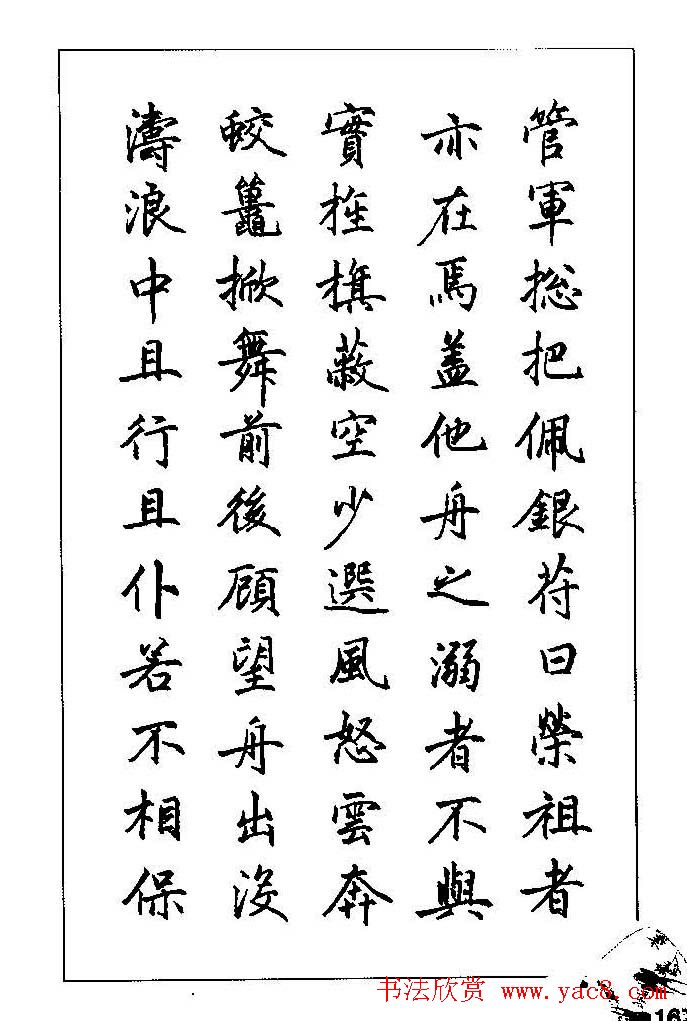 管軍捴把佩銀苻曰榮祖者
亦在焉蓋他舟之溺者不與
實旌旗蔽空少選風怒雲奔
蛟鼉掀舞前後顧望舟出没
濤浪中且行且仆若不相保
书法欣赏 www.yac8.com
16